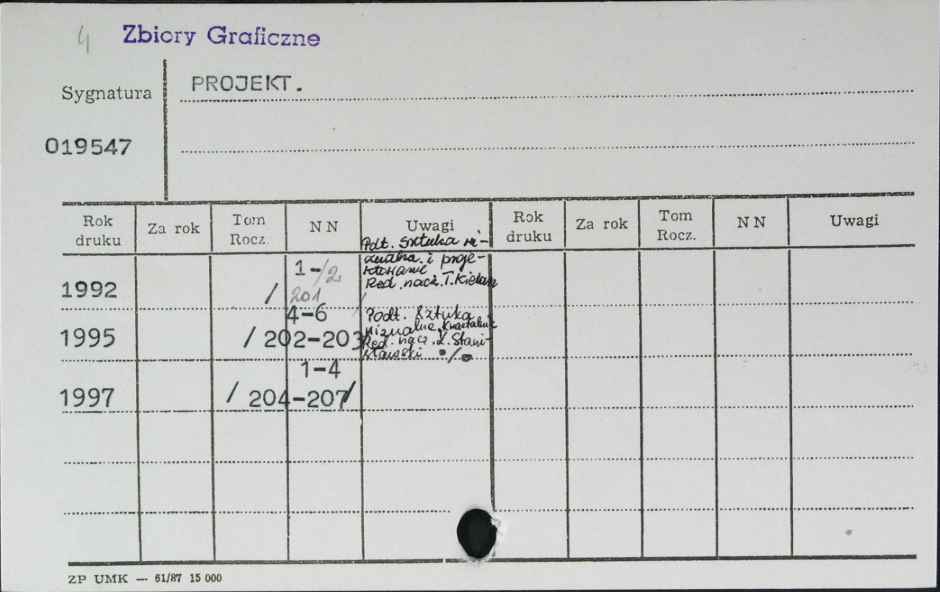 4 Zbiory Graficzne
Sygnatura PROJEKT.
019547
Rok druku Za rok Tom Rocz. N N Uwagi Rok druku Za rok Tom Rocz. N N Uwagi
Pdt. Sztuka wi-
zualna i proje-
ktowanie
Red. nacz. T. Kielan
1992 1-/2
/ 201 /
4-6 Podt. Sztuka
wizualna. Kwartalnik
1995 / 202-203 Red. nacz. K. Stani-
sławski
1-4
1997 / 204-207/
ZP UMK — 61/87 15 000